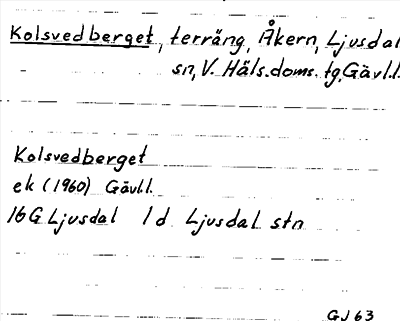 Kolsvedberget, terräng, Åkern, Ljusdal
sn, V. Häls. doms. tg, Gävl.l.
Kolsvedberget
ek (1960) Gävl.l.
16G Ljusdal 1d Ljusdal stn
GJ 63